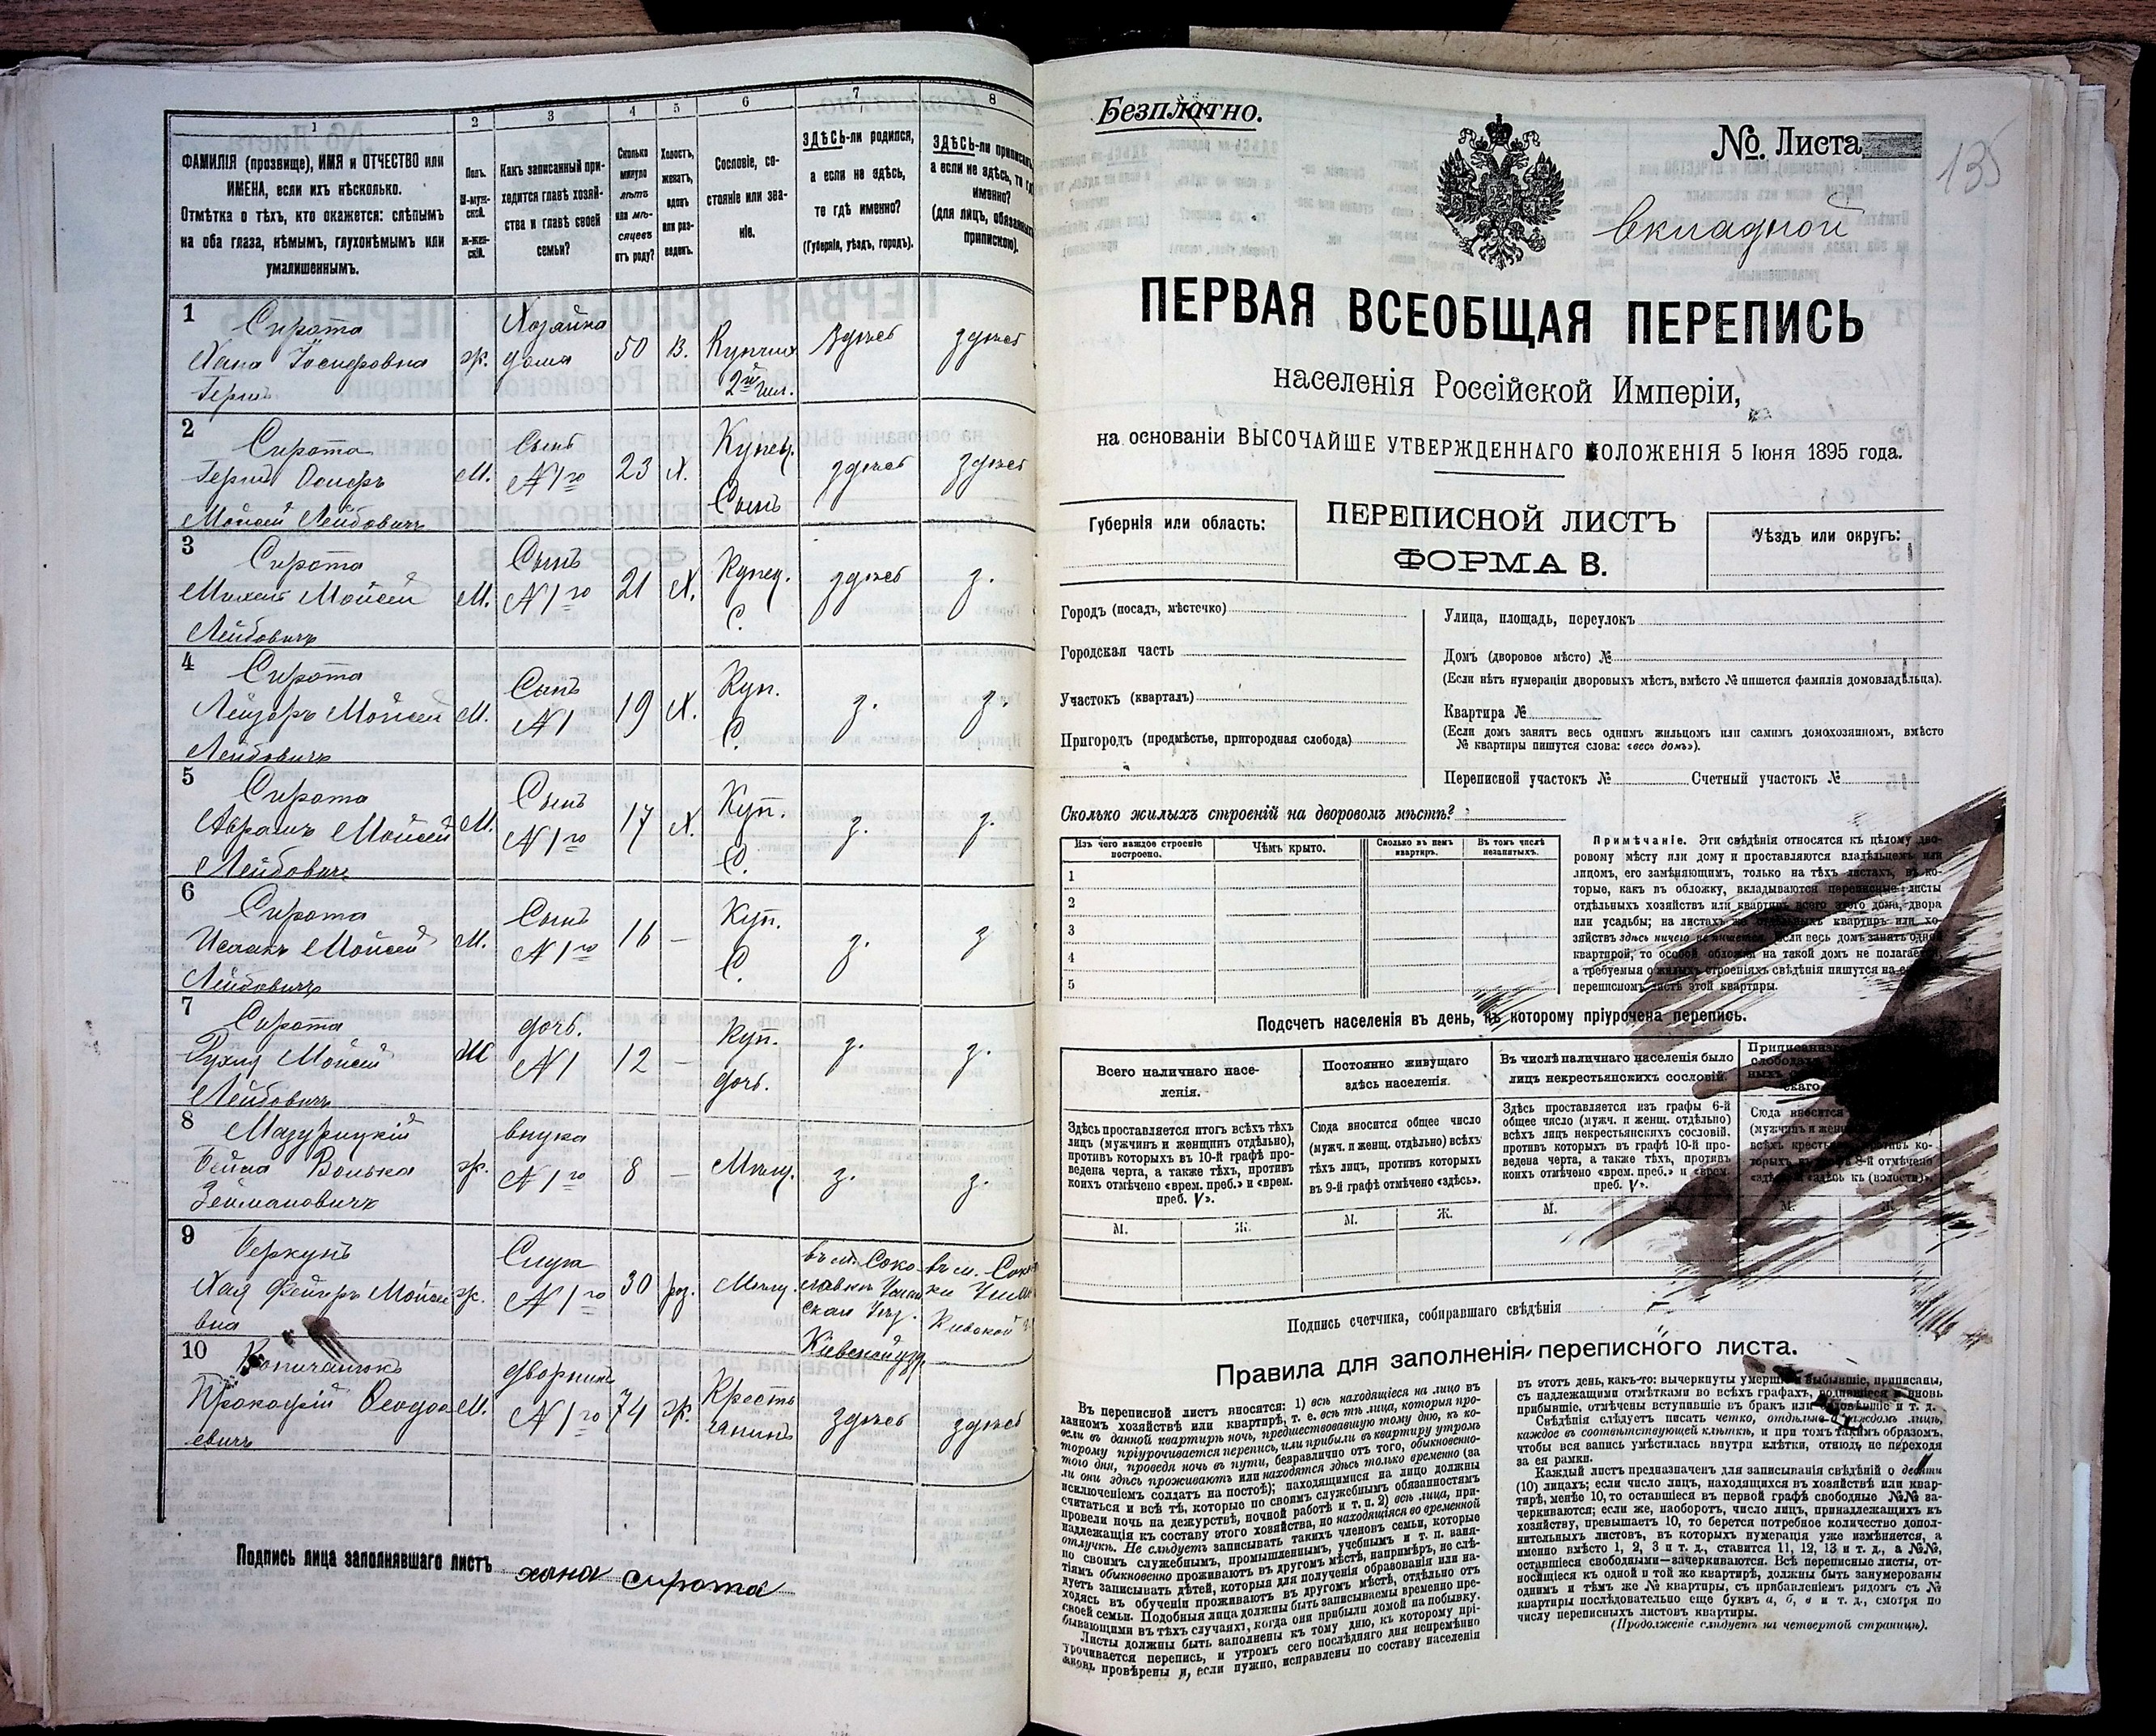 1
2
3
4
5
6
7
8
ФАМИЛІЯ (прозвище), ИМЯ и ОТЧЕСТВО или
ИМЕНА, если ихъ нѣсколько.
Отмѣтка о тѣхъ, кто окажется: слѣпымъ
на оба глаза, нѣмымъ, глухонѣмымъ или
умалишеннымъ.
Полъ.
М-муж-
ской.
Ж-жен-
скій.
Какъ записанный при-
ходится главѣ хозяй-
ства и главѣ своей
семьи?
Сколько
минуло
лѣтъ
или мѣ-
сяцевъ
отъ роду?
Холостъ,
женатъ,
вдовъ
или раз-
веденъ.
Сословіе, со-
стояніе или зва-
ніе.
ЗДѢСЬ-ли родился,
а если не здѣсь,
то гдѣ именно?
(Губернія, уѣздъ, городъ).
ЗДѢСЬ-ли приписанъ,
а если не здѣсь, то гдѣ
именно?
(для лицъ, обязанныхъ
припискою).
1
Сирота
Хана Іосифовна
Хозяйка
дома
ж.
50
В.
2й гил.
здѣсь
здѣсь
2
Сирота
Мойсей Лейбовичъ
М.
Сынъ
№ 1го
23
Х.
Купец.
Сынъ
здѣсь
здѣсь
3
Сирота
Мойсей
Лейбовичъ
М.
Сынъ
№ 1го
21
Х.
Купец.
С.
здѣсь
з.
4
Сирота
Лейзеръ Мойсей
Лейбовичъ
М.
Сынъ
№ 1
19
Х.
Куп.
С.
з.
з.
5
Сирота
Абрамъ Мойсей
Лейбовичъ
М.
Сынъ
№ 1го
17
Х.
Куп.
С.
з.
з.
6
Сирота
Исаакъ Мойсей
Лейбовичъ
М.
Сынъ
№ 1го
16
—
Куп.
С.
з.
з
7
Сирота
Рухля Мойсей
Лейбовичъ
Ж
дочь.
№ 1
12
—
Куп.
дочь.
з.
з.
8
Мазурицкій
Бейла Волька
Зейлмановичъ
ж.
внука
№ 1го
8
—
Мѣщ.
з.
з.
9
Беркунъ
Хая Фейга Мойсе
вна
ж.
Слуга
№ 1го
30
раз.
Мѣщ.
въ м. Соко
Уѣз.
Кіевской губ.
въ м. Соко
Кіевской
10
Прокофій Феодос
евичъ
М.
дворникъ
№ 1го
74
ж.
Кресть
янинъ
здѣсь
здѣсь
Подпись лица заполнявшаго листъ хана сирота
Безплатно.
№ Листа
135
вкладной
ПЕРВАЯ ВСЕОБЩАЯ ПЕРЕПИСЬ
населенія Россійской Имперіи,
на основаніи ВЫСОЧАЙШЕ УТВЕРЖДЕННАГО ПОЛОЖЕНІЯ 5 Іюня 1895 года.
Губернія или область:
ПЕРЕПИСНОЙ ЛИСТЪ
ФОРМА В.
Уѣздъ или округъ:
Городъ (посадъ, мѣстечко)
Городская часть
Участокъ (кварталъ)
Пригородъ (предмѣстье, пригородная слобода)
Улица, площадь, переулокъ
Домъ (дворовое мѣсто) №
(Если нѣтъ нумераціи дворовыхъ мѣстъ, вмѣсто № пишется фамилія домовладѣльца).
Квартира №
(Если домъ занятъ весь однимъ жильцомъ или самимъ домохозяиномъ, вмѣсто
№ квартиры пишутся слова: «весь домъ»).
Переписной участокъ № Счетный участокъ №
Сколько жилыхъ строеній на дворовомъ мѣстѣ?
Изъ чего каждое строеніе
построено.
Чѣмъ крыто.
Сколько въ немъ
квартиръ.
Въ томъ числѣ
незанятыхъ.
1
2
3
4
5
Примѣчаніе. Эти свѣдѣнія относятся къ цѣлому дво-
ровому мѣсту или дому и проставляются владѣльцемъ или
лицомъ, его замѣняющимъ, только на тѣхъ листахъ, въ ко-
торые, какъ въ обложку, вкладываются переписные листы
отдѣльныхъ хозяйствъ или квартиръ всего этого дома, двора
или усадьбы; на листахъ же отдѣльныхъ квартиръ или хо-
зяйствъ здѣсь ничего не пишется. Если весь домъ занятъ одной
квартирой, то особой обложки на такой домъ не полагается,
а требуемыя о жилыхъ строеніяхъ свѣдѣнія пишутся на
переписномъ листѣ этой квартиры.
Подсчетъ населенія въ день, къ которому пріурочена перепись.
Всего наличнаго насе-
ленія.
Постоянно живущаго
здѣсь населенія.
Въ числѣ наличнаго населенія было
лицъ некрестьянскихъ сословій.
Здѣсь проставляется итогъ всѣхъ тѣхъ
лицъ (мужчинъ и женщинъ отдѣльно),
противъ которыхъ въ 10-й графѣ про-
ведена черта, а также тѣхъ, противъ
коихъ отмѣчено «врем. преб.» и «врем.
преб. V».
Сюда вносится общее число
(мужч. и женщ. отдѣльно) всѣхъ
тѣхъ лицъ, противъ которыхъ
въ 9-й графѣ отмѣчено «здѣсь».
Здѣсь проставляется изъ графы 6-й
общее число (мужч. и женщ. отдѣльно)
всѣхъ лицъ некрестьянскихъ сословій,
противъ которыхъ въ графѣ 10-й про-
ведена черта, а также тѣхъ, противъ
коихъ отмѣчено «врем. преб.» и «врем.
преб. V».
Сюда вносится
М.
Ж.
М.
Ж.
М.
М.
Ж.
Подпись счетчика, собиравшаго свѣдѣнія
Правила для заполненія переписного листа.
Въ переписной листъ вносятся: 1) всѣ находящіеся на лицо въ
данномъ хозяйствѣ или квартирѣ, т. е. всѣ тѣ лица, которыя про-
вели въ данной квартирѣ ночь, предшествовавшую тому дню, къ ко-
торому пріурочивается перепись, или прибыли въ квартиру утромъ
того дня, проведя ночь въ пути, безразлично отъ того, обыкновенно-
ли они здѣсь проживаютъ или находятся здѣсь только временно (за
исключеніемъ солдатъ на постоѣ); находящимися на лицо должны
считаться и всѣ тѣ, которые по своимъ служебнымъ обязанностямъ
провели ночь на дежурствѣ, ночной работѣ и т. п. 2) всѣ лица, при-
надлежащія къ составу этого хозяйства, но находящіяся во временной
отлучкѣ. Не слѣдуетъ записывать такихъ членовъ семьи, которые
по своимъ служебнымъ, промышленнымъ, учебнымъ и т. п. заня-
тіямъ обыкновенно проживаютъ въ другомъ мѣстѣ, напримѣръ, не слѣ-
дуетъ записывать дѣтей, которыя для полученія образованія или на-
ходясь въ обученіи проживаютъ въ другомъ мѣстѣ, отдѣльно отъ
своей семьи. Подобныя лица должны быть записываемы временно пре-
бывающими въ тѣхъ случаяхъ, когда они прибыли домой на побывку.
Листы должны быть заполнены къ тому дню, къ которому прі-
урочивается перепись, и утромъ сего послѣдняго дня непремѣнно
вновь провѣрены и, если нужно, исправлены по составу населенія
въ этотъ день, какъ-то: вычеркнуты умершіе и выбывшіе, приписаны,
съ надлежащими отмѣтками во всѣхъ графахъ, родившіеся и вновь
прибывшіе, отмѣчены вступившіе въ бракъ или овдовѣвшіе и т. д.
Свѣдѣнія слѣдуетъ писать четко, отдѣльно о каждомъ лицѣ,
каждое въ соотвѣтствующей клѣткѣ, и при томъ такимъ образомъ,
чтобы вся запись умѣстилась внутри клѣтки, отнюдь не переходя
за ея рамки.
Каждый листъ предназначенъ для записыванія свѣдѣній о десяти
(10) лицахъ; если число лицъ, находящихся въ хозяйствѣ или квар-
тирѣ, менѣе 10, то оставшіеся въ первой графѣ свободные №№ за-
черкиваются; если же, наоборотъ, число лицъ, принадлежащихъ къ
хозяйству, превышаетъ 10, то берется потребное количество допол-
нительныхъ листовъ, въ которыхъ нумерація уже измѣняется, а
именно вмѣсто 1, 2, 3 и т. д., ставится 11, 12, 13 и т. д., а №№,
оставшіеся свободными—зачеркиваются. Всѣ переписные листы, от-
носящіеся къ одной и той же квартирѣ, должны быть занумерованы
однимъ и тѣмъ же № квартиры, съ прибавленіемъ рядомъ съ №
квартиры послѣдовательно еще буквъ а, б, в и т. д., смотря по
числу переписныхъ листовъ квартиры.
(Продолженіе слѣдуетъ на четвертой страницѣ).